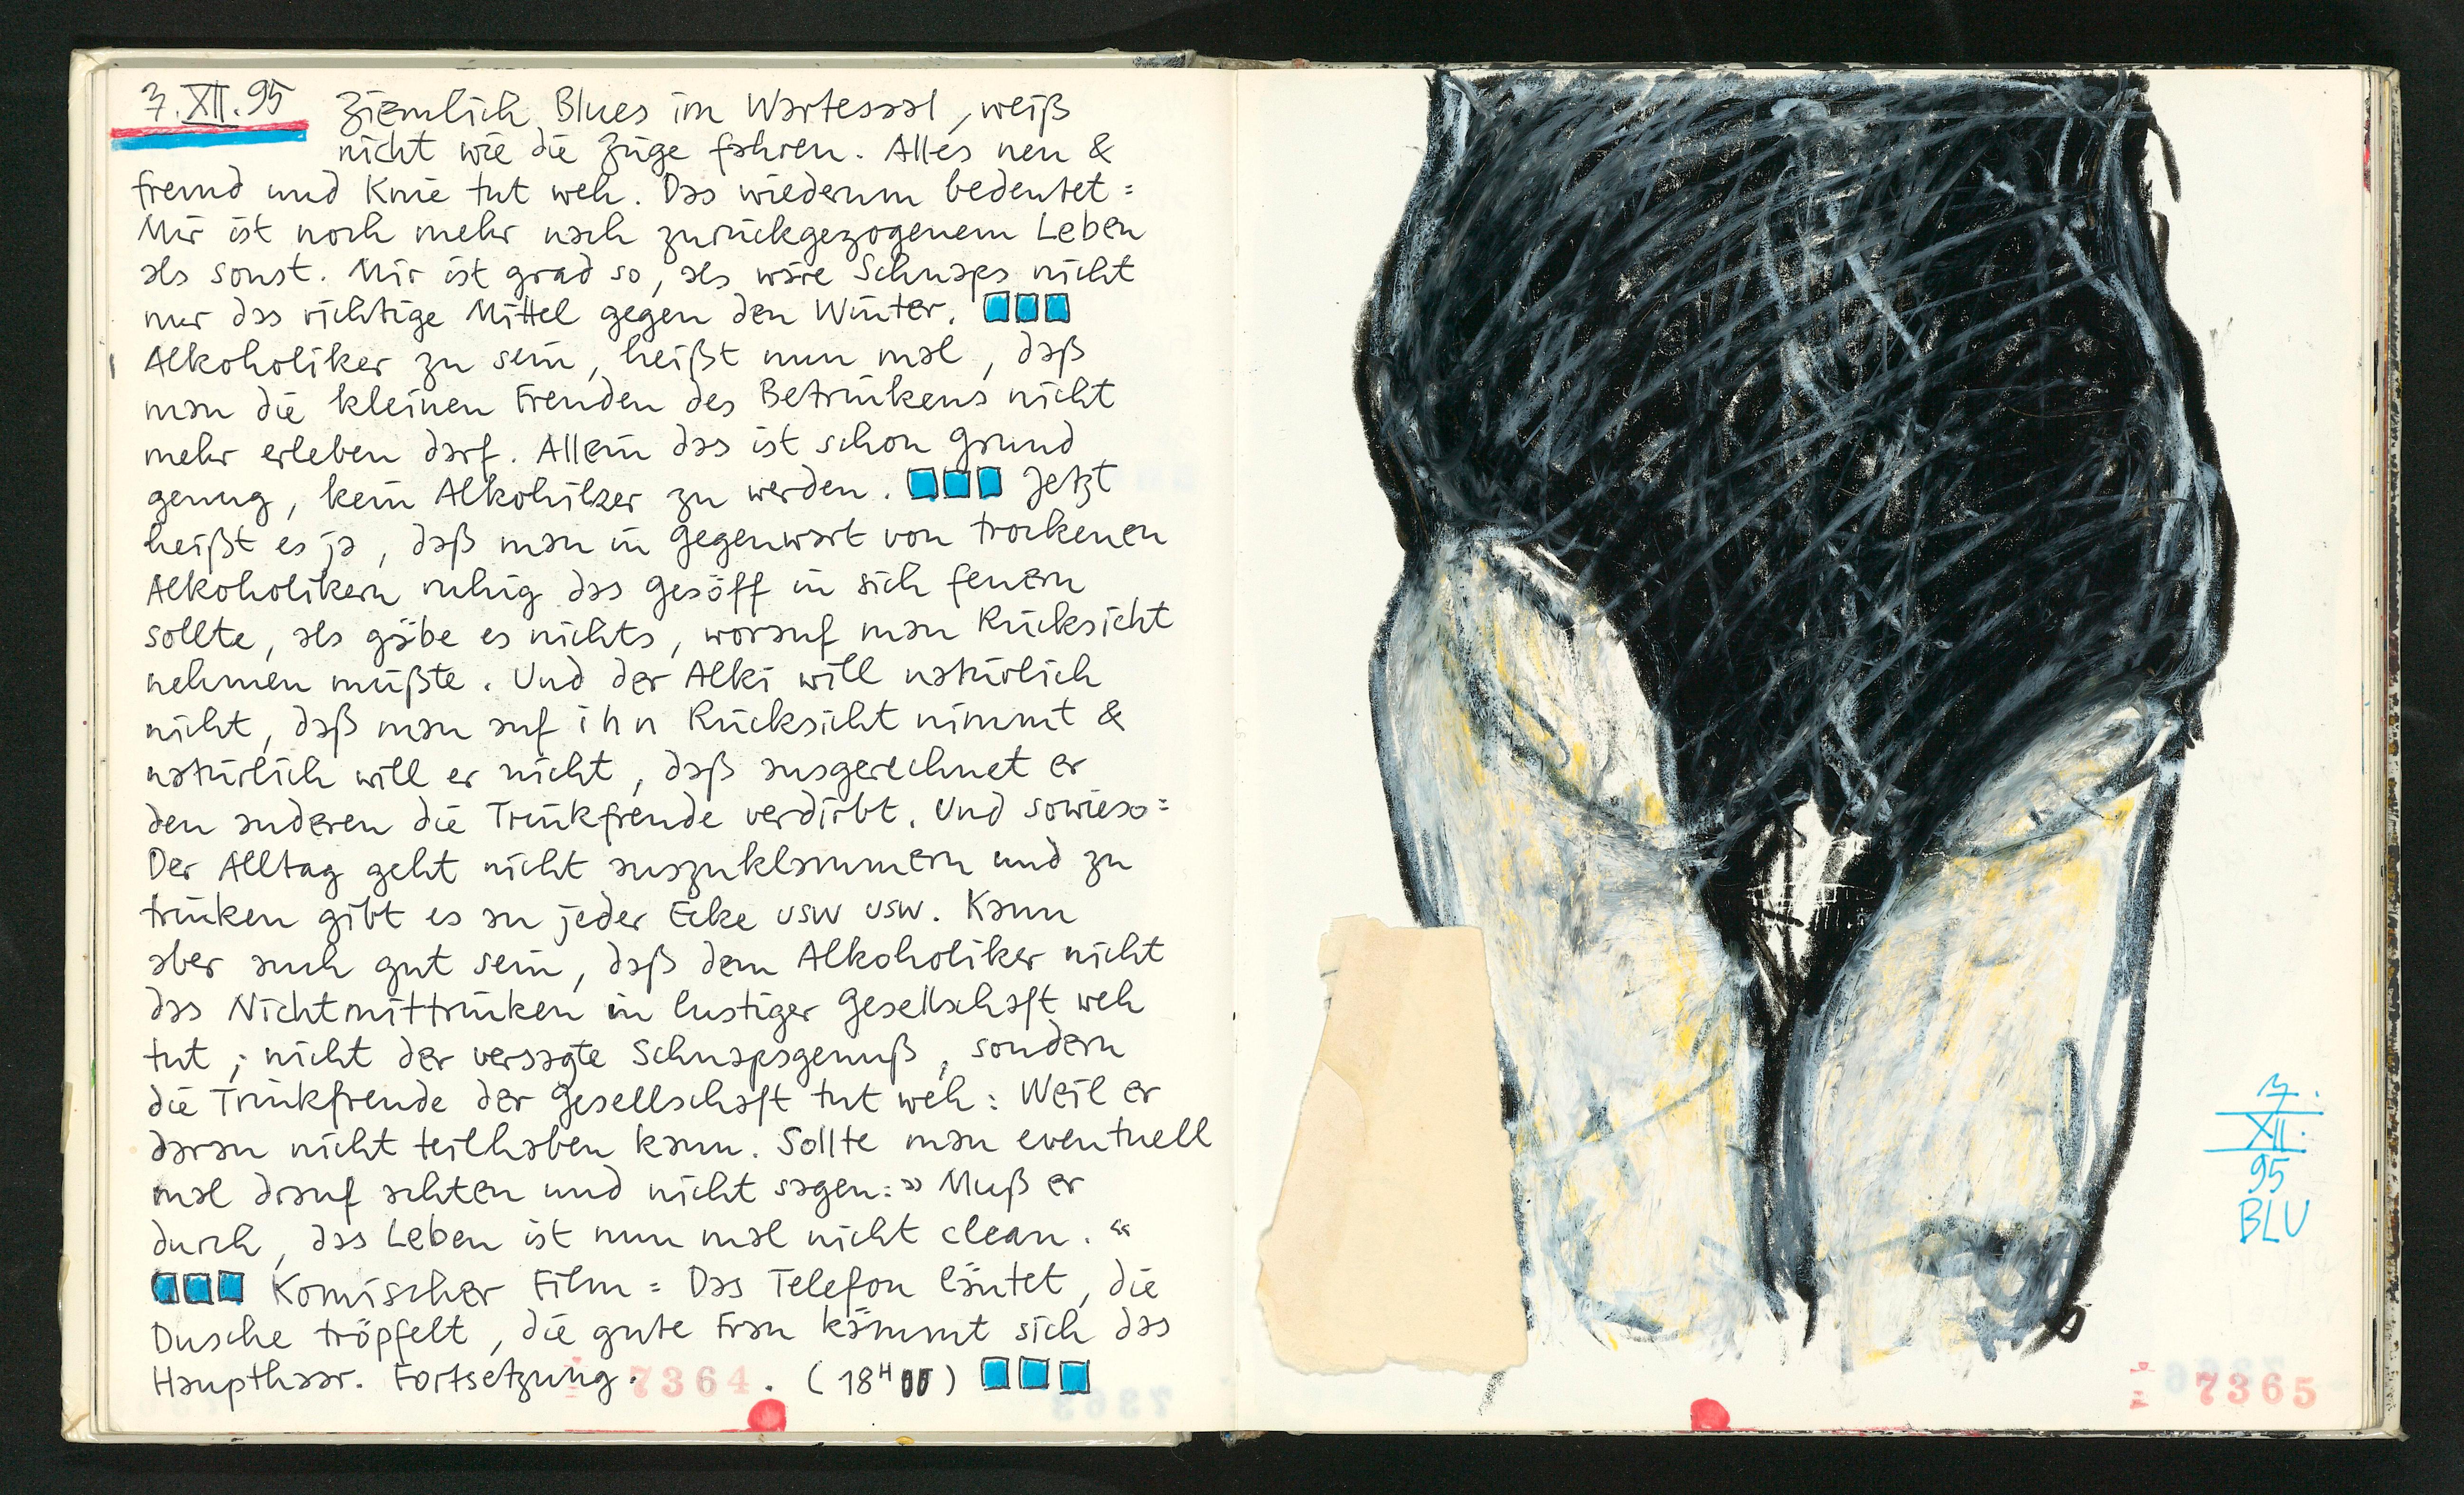 7.XII.95 Ziemlich Blues im Wartesaal, weiß
nicht wie die Züge fahren. Alles neu &
fremd und Knie tut weh. Das wiederum bedeutet:
Mir ist noch mehr nach zurückgezogenem Leben
als sonst. Mir ist grad so, als wäre Schnaps nicht
nur das richtige Mittel gegen den Winter.
Alkoholiker zu sein, heißt nun mal, daß
man die kleinen Freuden des Betrinkens nicht
mehr erleben darf. Allein das ist schon Grund
genug, kein Alkohilker zu werden. Jetzt
heißt es ja, daß man in Gegenwart von trockenen
Alkoholikern ruhig das Gesöff in sich feuern
sollte, als gäbe es nichts, worauf man Rücksicht
nehmen müßte. Und der Alki will natürlich
nicht, daß man auf ihn Rücksicht nimmt &
natürlich will er nicht, daß ausgerechnet er
den anderen die Trinkfreude verdirbt. Und sowieso:
Der Alltag geht nicht auszuklammern und zu
trinken gibt es an jeder Ecke usw usw. Kann
aber auch gut sein, daß dem Alkoholiker nicht
das Nichtmittrinken in lustiger Gesellschaft weh
tut; nicht der versagte Schnapsgenuß, sondern
die Trinkfreude der Gesellschaft tut weh: Weil er
daran nicht teilhaben kann. Sollte man eventuell
mal drauf achten und nicht sagen: » Muß er
durch, das Leben ist nun mal nicht clean. «
Komischer Film: Das Telefon läutet, die
Dusche tröpfelt, die gute Frau kämmt sich das
Haupthaar. Fortsetzung. 7364. (18H00)
7.
XII.
95
BLU
7365